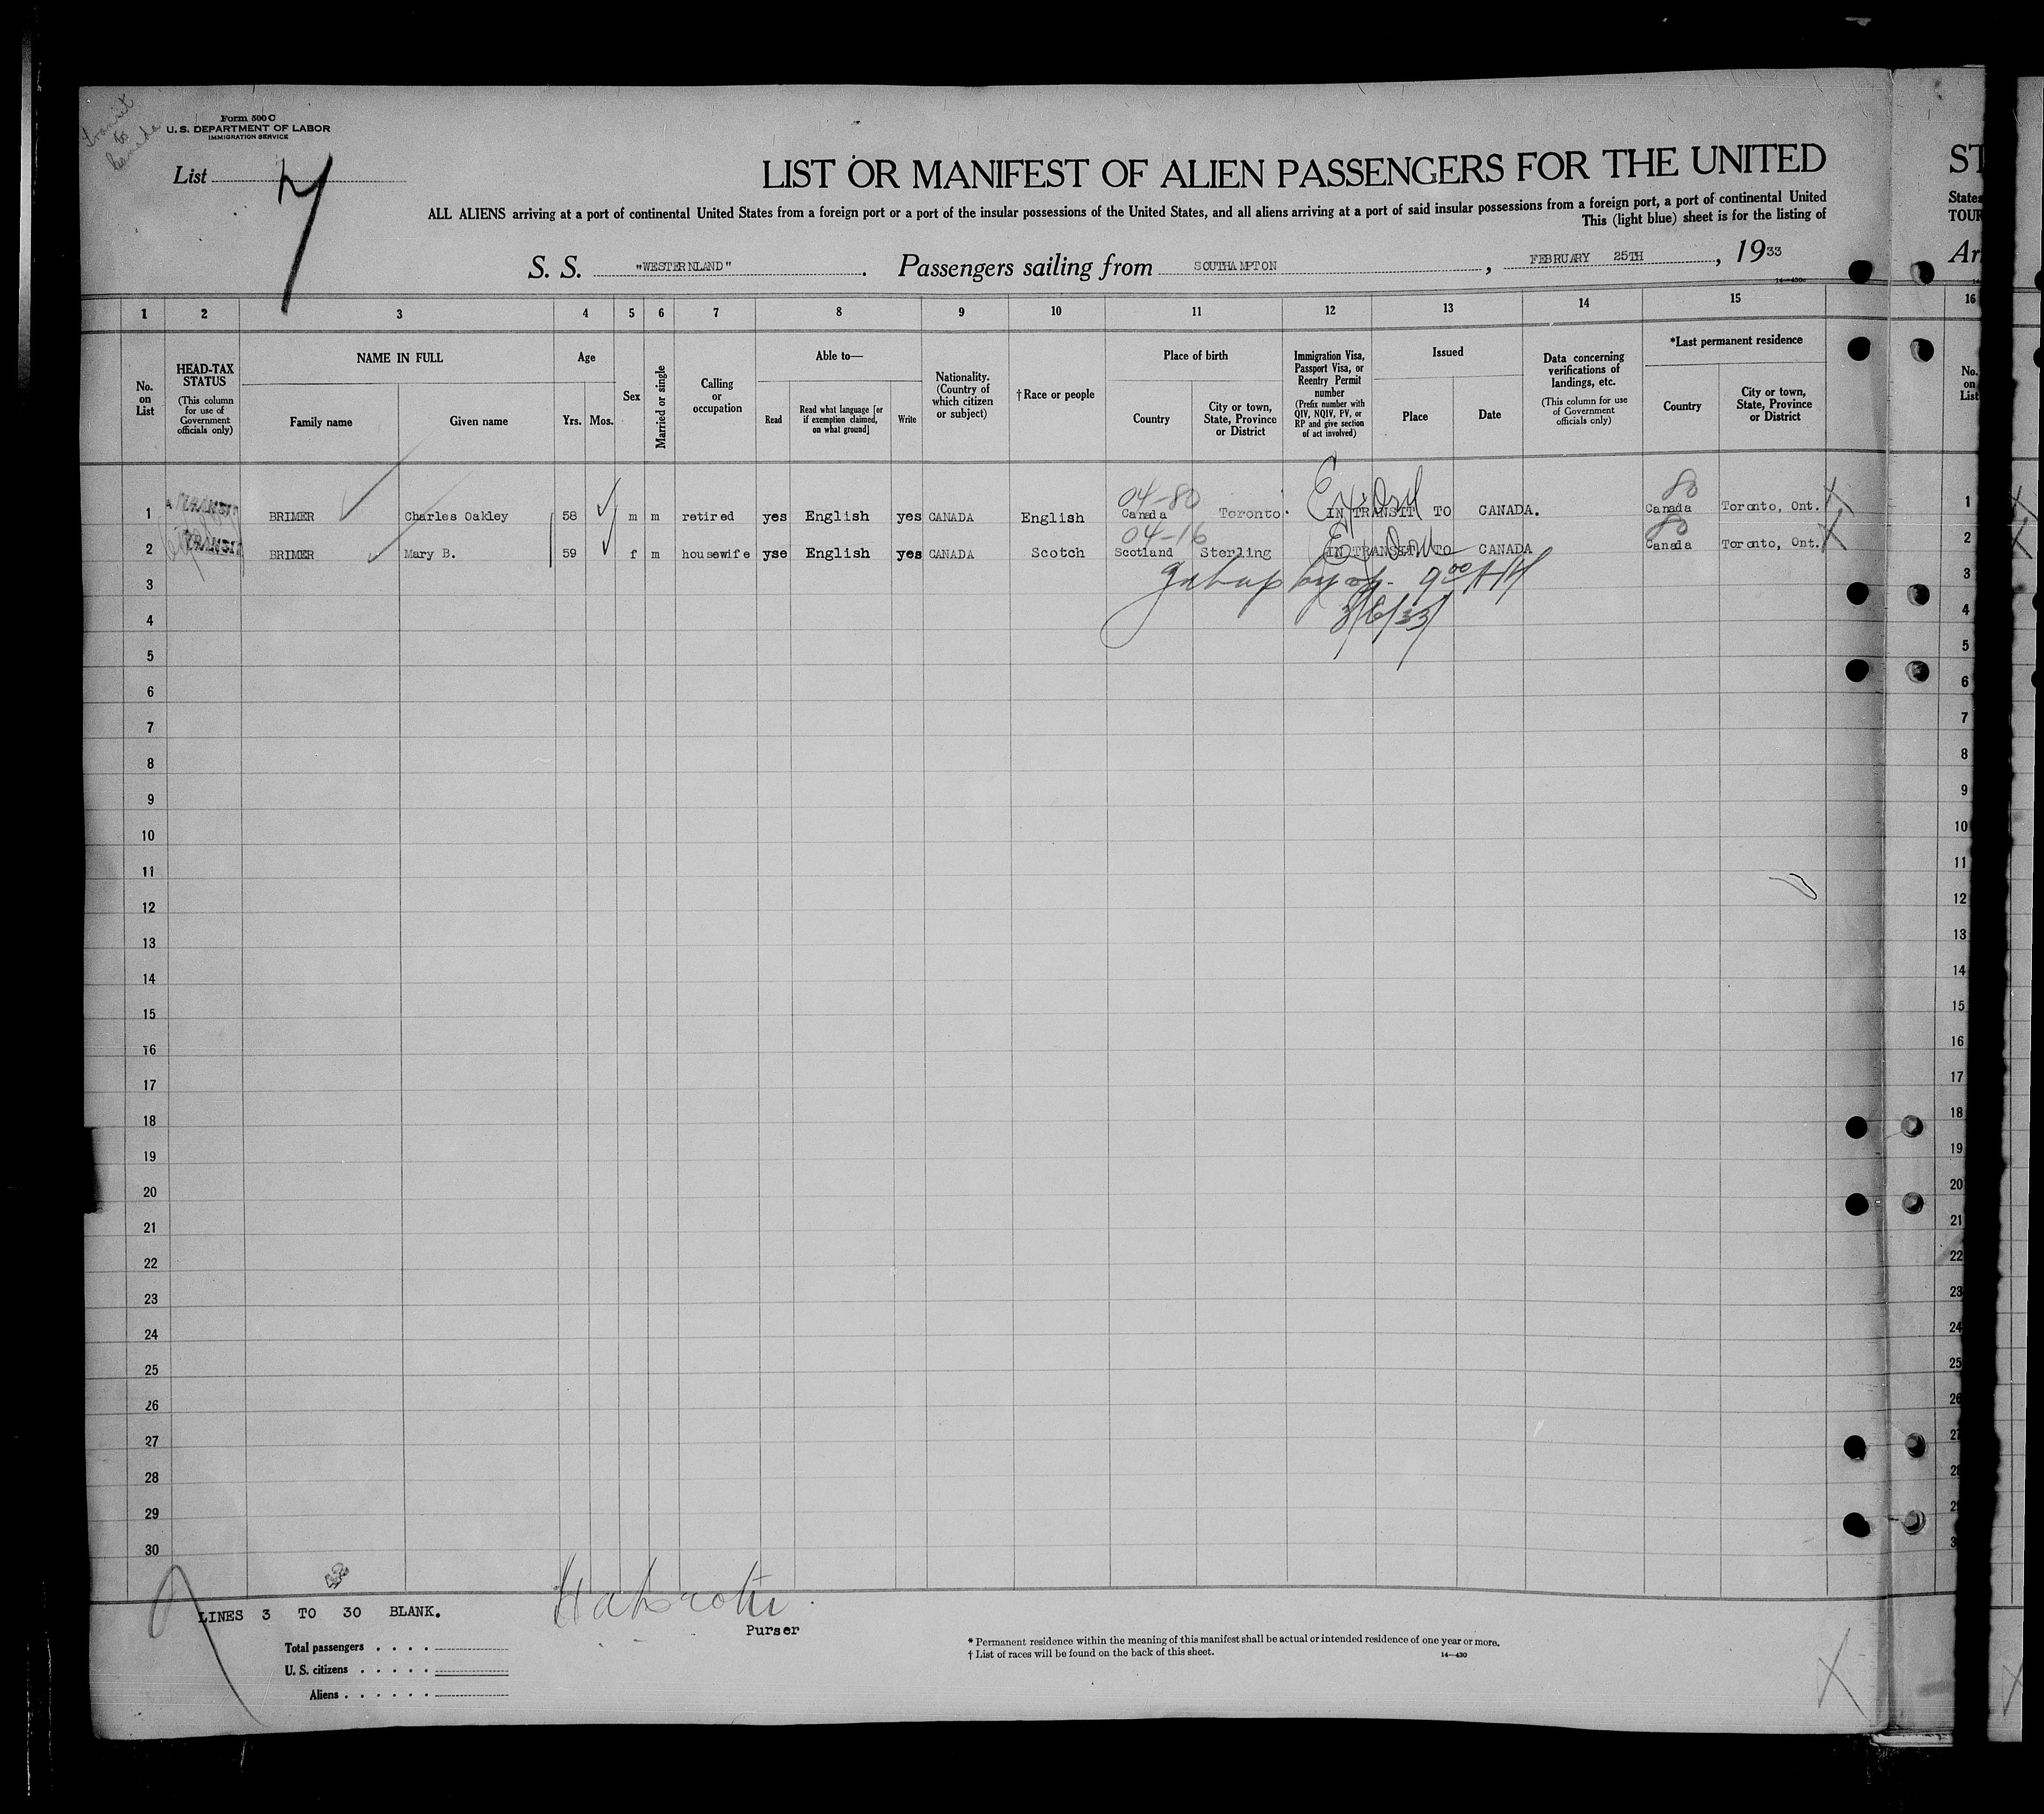 Transit
to
Canada
Form 500 C
U. S. DEPARTMENT OF LABOR
IMMIGRATION SERVICE
List 7
LIST OR MANIFEST OF ALIEN PASSENGERS FOR THE UNITED
ST
ALL ALIENS arriving at a port of continental United States from a foreign port or a port of the insular possessions of the United States, and all aliens arriving at a port of said insular possessions from a foreign port, a port of continental United
States
This (light blue) sheet is for the listing of
TOUR
S. S. "WESTERNLAND". Passengers sailing from SOUTHAMPTON, FEBRUARY 25TH, 1933
Ar
14—430c
1 2 3 4 5 6 7 8 9 10 11 12 13 14 15 16
No. on List
HEAD-TAX STATUS (This column for use of Government officials only)
NAME IN FULL
Family name
Given name
Age
Yrs. Mos.
Sex
Married or single
Calling or occupation
Able to—
Read
Read what language [or if exemption claimed, on what ground]
Write
Nationality. (Country of which citizen or subject)
† Race or people
Place of birth
Country
City or town, State, Province or District
Immigration Visa, Passport Visa, or Reentry Permit number (Prefix number with QIV, NQIV, PV, or RP and give section of act involved)
Issued
Place
Date
Data concerning verifications of landings, etc. (This column for use of Government officials only)
*Last permanent residence
Country
City or town, State, Province or District
No. on List
04-80 80
1 TRANSIT BRIMER Charles Oakley 58 m m retired yes English yes CANADA English Canada Toronto IN TRANSIT TO CANADA. Canada Toronto, Ont. X 1
04-16 80
2 TRANSIT BRIMER Mary B. 59 f m housewife yse English yes CANADA Scotch Scotland Sterling IN TRANSIT TO CANADA Canada Toronto, Ont. X 2
9 00 AM
3 3
3/6/33
4 4
5 5
6 6
7 7
8 8
9 9
10 10
11 11
12 12
13 13
14 14
15 15
16 16
17 17
18 18
19 19
20 20
21 21
22 22
23 23
24 24
25 25
26 26
27 27
28 28
29 29
30 3
LINES 3 TO 30 BLANK.
Purser
Total passengers
U. S. citizens
Aliens
* Permanent residence within the meaning of this manifest shall be actual or intended residence of one year or more.
† List of races will be found on the back of this sheet.
14—430
X